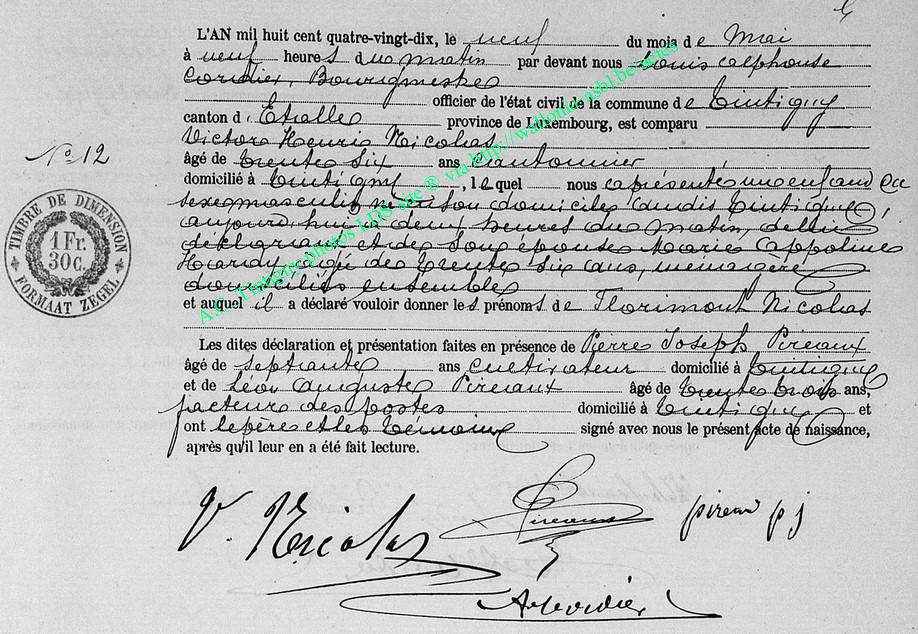 L'AN mil huit cent quatre-vingt-dix, le neuf du mois de Mai
à neuf heures du matin par devant nous Louis Alphonse
Cordier, Bourgmestre
officier de l'état civil de la commune de Tintigny
canton d'Etalle province de Luxembourg, est comparu
Victor Henri Nicolas
N° 12
âgé de trente six ans Cantonnier
domicilié à Tintigny, lequel nous a présenté un enfant du
sexe masculin né en son domicile audit Tintigny,
aujourd'hui à deux heures du matin, de lui
déclarant et de son épouse Marie Appoline
Hardy, âgée de trente six ans, ménagère
domiciliés ensemble
et auquel il a déclaré vouloir donner les prénoms de Florimont Nicolas
Les dites déclaration et présentation faites en présence de Pierre Joseph Pireaux
âgé de septante ans cultivateur domicilié à Tintigny
et de Léon Auguste Pireaux âgé de trente trois ans,
facteur des postes domicilié à Tintigny et
ont le père et les témoins signé avec nous le présent acte de naissance,
après qu'il leur en a été fait lecture.
TIMBRE DE DIMENSION
1 Fr.
30 c.
FORMAAT ZEGEL
A.C. Tintigny photos LDS site ® via http://wallonia.asbl.be/actes
V. Nicolas Pireaux pireau p j
A Cordier